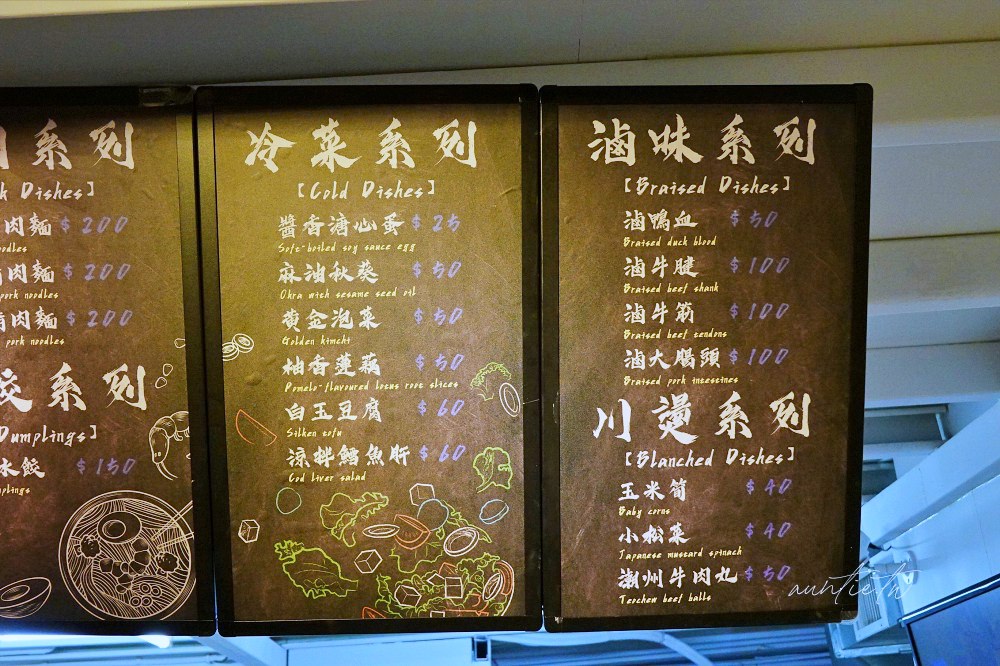 系列
Dishes】
肉麵 $200
noodles
肉麵 $200
pork noodles
肉麵 $200
pork noodles
系列
Dumplings】
水餃 $150
冷菜系列
【Cold Dishes】
醬香溏心蛋 $25
Soft-boiled soy sauce egg
麻油秋葵 $50
Okra with sesame seed oil
黃金泡菜 $50
Golden kimchi
柚香蓮藕 $50
Pomelo-flavoured lotus root slices
白玉豆腐 $60
Silken tofu
涼拌鱈魚肝 $60
Cod liver salad
滷味系列
【Braised Dishes】
滷鴨血 $50
Braised duck blood
滷牛腱 $100
Braised beef shank
滷牛筋 $100
Braised beef tendons
滷大腸頭 $100
Braised pork intestines
川燙系列
【Blanched Dishes】
玉米筍 $40
Baby corns
小松菜 $40
Japanese mustard spinach
潮州牛肉丸 $50
Teochew beef balls
auntie.h